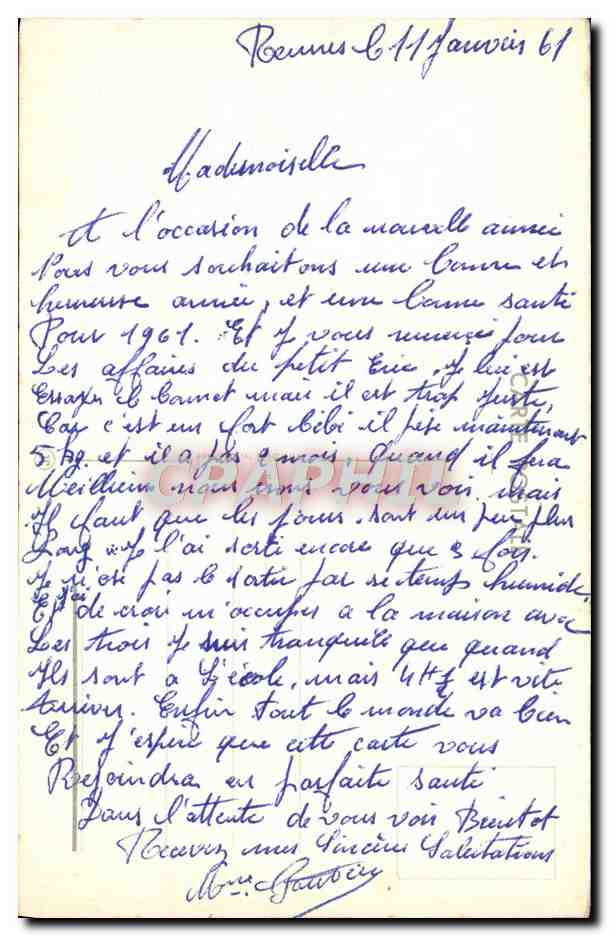 Rennes le 11 Janvier 61
Mademoiselle
A l'occasion de la nouvelle année
Nous vous souhaitons une bonne et
heureuse année, et une bonne santé
Pour 1961. Et J vous remercie pour
Les affaires du petit Eric, J lui est
Essayer le bonnet mais il est trop Juste,
Car c'est un fort bébé il pèse maintenant
5 kg. et il a pas 2 mois. Quand il fera
Meilleur nous irons vous voir, mais
Il faut que les jours sont un peu plus
Long. J l'ai sorti encore que 2 fois.
J n'ose pas le sortir par se temps humide.
Et J'ai de quoi m'occuper a la maison avec
Les trois J suis tranquille que quand
Ils sont a L'école, mais 4H½ est vite
Arriver. Enfin tout le monde va bien
Et J'espère que cette carte vous
Rejoindra en parfaite santé
Dans l'attente de vous voir Bientot
Recevez mes Sincère Salutations
Mme
CARTE POSTALE
CPAPHIL